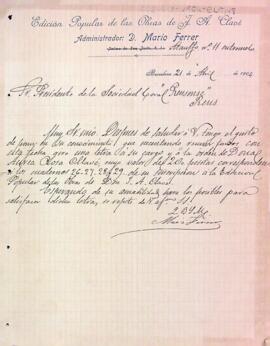 Edición Popular de las Obras de J. A. Clavé
Administrador: D. Mario Ferrer
Ataulfo nº 11 entresuelo
Barcelona 21 de Abril de 1904
Sr. Presidente de la Sociedad Coral
Reus
Muy Sr. mio: Despues de saludar á V. tengo el gusto
de poner en su conocimiento que necesitando reunir fondos con
esta fecha giro una letra á su cargo y á la orden de Doña
Aurea Rosa Clavé cuyo valor de 20 pesetas corresponden
á los cuadernos 26-27-28 y 29 de su suscripcion á la Edicion
Popular de las Obras de Dn J. A. Clavé.
Esperando de su amabilidad hará los posibles para
satisfacer dicha letra, se repite de V. aff. S.S.
Q. B. S. M.
Mario Ferrer